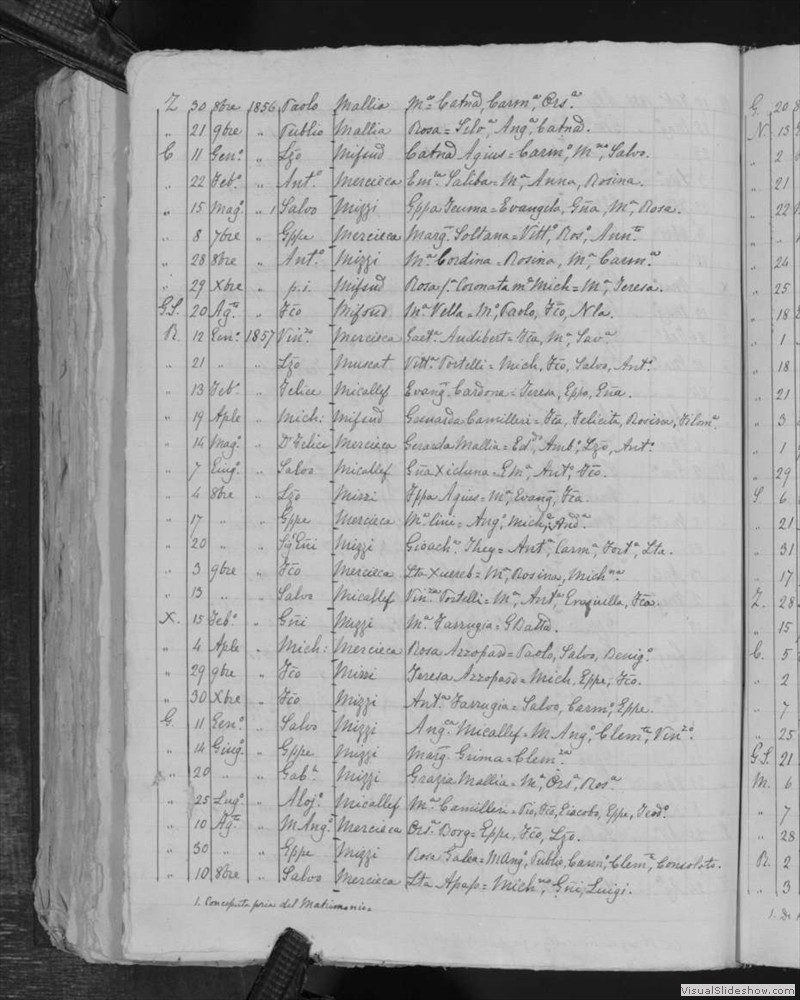 Z 30 8bre 1856 Paolo Mallia Mª= Catnd, Carmª, Orsª.
" 21 9bre " Publio Mallia Rosa= Angª, Catnd.
C 11 Genº " Lzō Mifsud Catnd Agius= Carmº, Salvo.
" 22 Febº " Antº Mercieca Emª Saliba= Mª, Anna, Rosina.
" 15 Magº " 1 Salvo Mizzi Gppa Icuma= Evangela, Gña, Mª, Rosa.
" 8 7bre " Gppe Mercieca Marg. Soltana= Vittº, Rosº,
" 28 8bre " Antº Mizzi Mª Cordina= Rosina, Mª, Carmª
" 29 Xbre " p.i. Mifsud Rosa Coronata Mich= Mª, Teresa.
G.S. 20 Agº " Fcō Mifsud Mª Vella= Mº, Paolo, Fcō, Nla.
R. 12 Genº 1857 Vinzº Mercieca Gaetª Audibert= Fca, Mª, Savª
" 21 " " Lzō Muscat Vittª Portelli= Mich, Fcō, Salvo, Antº.
" 13 Febº " Felice Micallef Evang. Cardona= Teresa, Eppo, Gña.
" 19 Aple " Mich: Mifsud Camilleri= Fca, Felicita, Rosina, Filomª
" 14 Magº " Dr Felice Mercieca Gerarda Mallia= Ambº, Lzō, Antº.
" 7 Giugº " Salvo Micallef Gña Xicluna= Emª, Antº, Fcō.
" 4 8bre " Lzō Mizzi Jppa Agius= Mª, Evang, Fca.
" 17 " " Gppe Mercieca Angº, Mich, Andª
" 20 " " Mizzi Gioachª They= Antº, Carmª, Fortª, Lta.
" 3 9bre " Fcō Mercieca Lta Xuereb= Mª, Rosina, Michª
" 13 " " Salvo Micallef Vinzª Portelli= Mª, Antª, Fca.
X. 15 Febº " Gñi Mizzi Mª Farrugia= GBatta.
" 4 Aple " Mich: Mercieca Rosa Azzopard= Paolo, Salvo, Benigº.
" 29 9bre " Fcō Mizzi Teresa Azzopard= Mich, Eppe, Fcō.
" 30 Xbre " Fcō Mizzi Antª Farrugia= Salvo, Carmº, Eppe.
G. 11 Genº " Salvo Mizzi Angª Micallef= M Angº, Clemte, Vinzº.
" 14 Giugº " Gppe Mizzi Marg. Grima= Clemza
" 20 " " Gabª Mizzi Grazia Mallia= Mª, Orsª, Rosª
" 25 Lugº " Alojº Micallef Mª Camilleri= Pio, Fcō, Giacobo, Eppe, Teodº
" 10 Agº " M Angº Mercieca Orsª Borg= Eppe, Fcō, Lzō.
" 30 " " Gppe Mizzi Rosa Galea= M Angº, Publio, Carmº, Clemte, Consolata.
" 10 8bre " Salvo Mercieca Lta Apap= Gñi, Luigi.
1. Concepita pria del Matrimonio.
G. 20
N. 13
" 2
" 21
" 22
" "
" 24
" 25
" 18
" 1
" 18
" 21
" 3
" 1
" 29
S. 6
" 21
" 31
" 17
Z. 28
" 15
C. 5
" 2
" 7
" 25
G.S. 21
M. 6
" 7
" 28
R. 2
" 3
VisualSlideshow.com